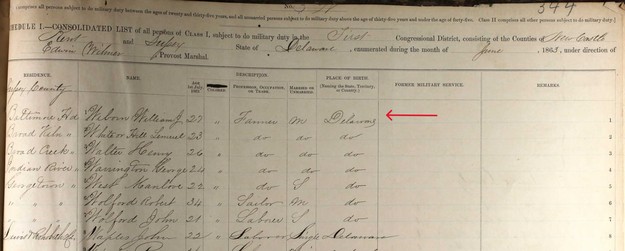 344
comprises all persons subject to military duty between the ages of twenty and thirty-five years, and all unmarried persons subject to military duty above the age of thirty-five years and under the age of forty-five. Class II comprises all other persons subject to military duty.]
SCHEDULE I.—CONSOLIDATED LIST of all persons of CLASS I, subject to military duty in the First Congressional District, consisting of the Counties of New Castle
Kent and Sussex State of Delaware, enumerated during the month of June 1863, under direction of
Edwin Wilmer Provost Marshal.
RESIDENCE. NAME. AGE 1st July, 1863. COLORED. DESCRIPTION. PROFESSION, OCCUPATION, OR TRADE. MARRIED OR UNMARRIED. PLACE OF BIRTH. (Naming the State, Territory, or Country.) FORMER MILITARY SERVICE. REMARKS.
County
Baltimore Hd William J. 27 " Farmer M Delaware 1
Broad Kiln " White or Hill Lemuel 23 " do do do 2
Broad Creek " Walter Henry 26 " do do do 3
Indian River " Warrington George 24 " do do do 4
Georgetown " West Manlove 22 " do S do 5
" " Wolford Robert 34 " M do 6
" " Wolford John 21 " Laborer S do 7
Lewis & Rehoboth Waples John 22 " Laborer Single Delaware 8